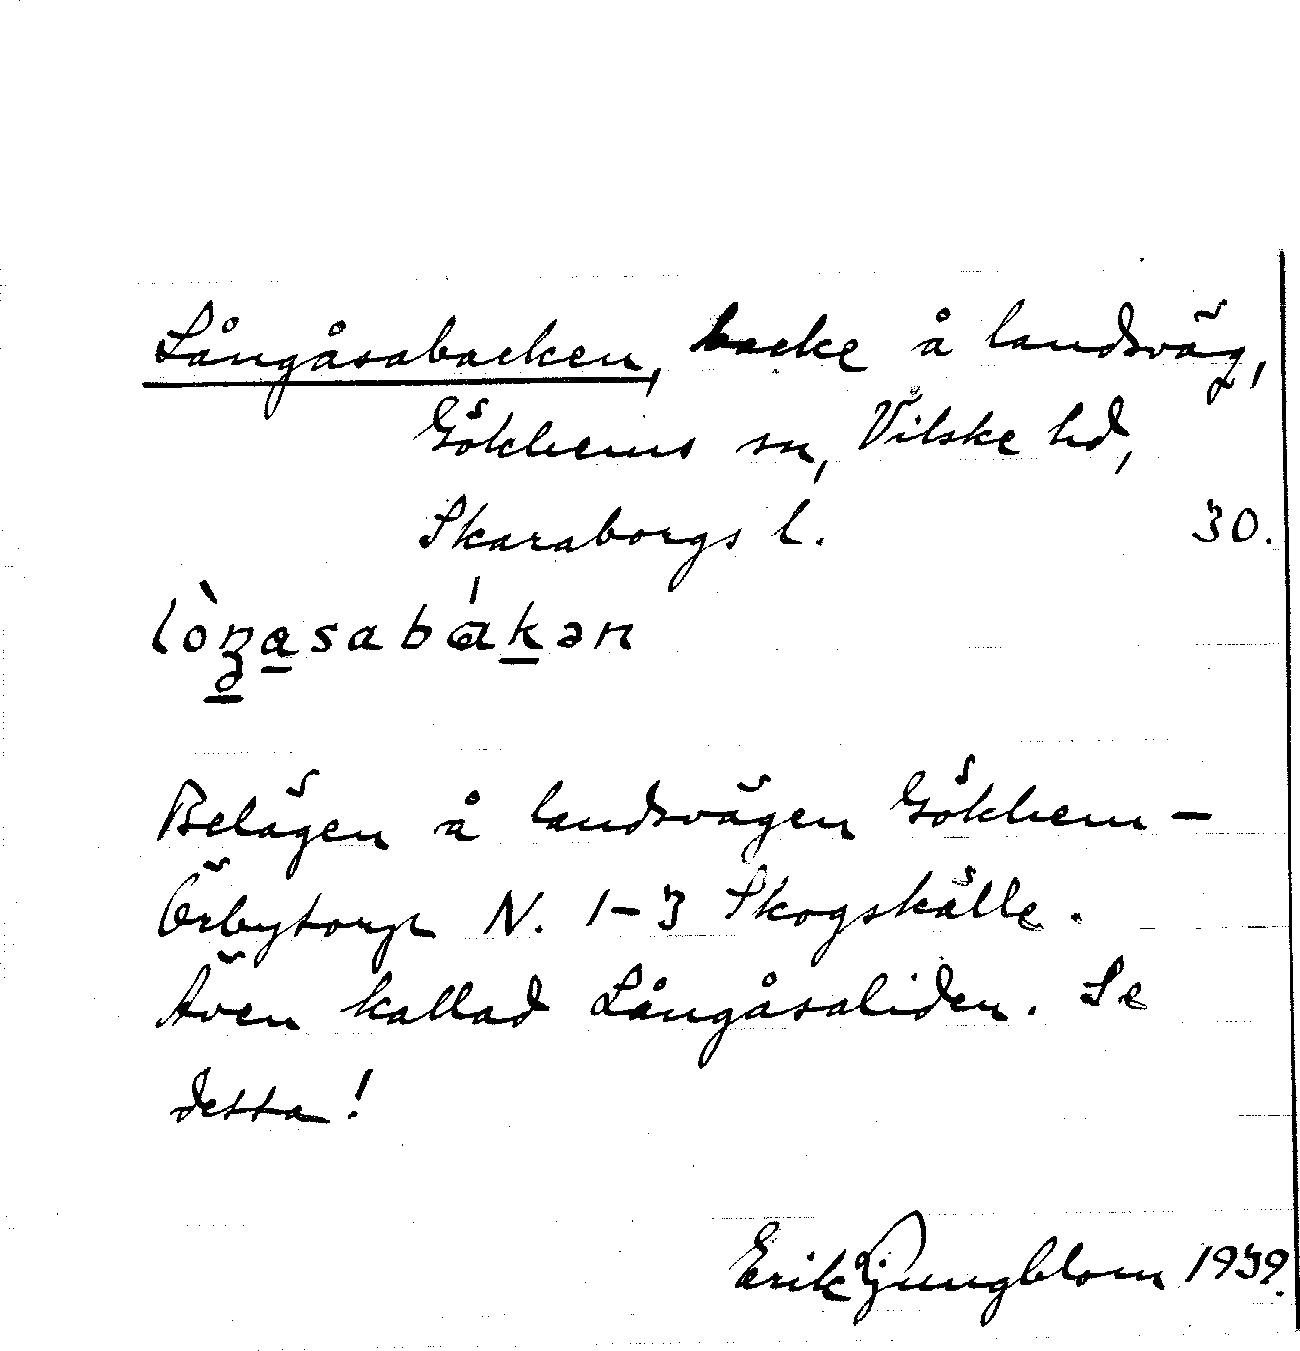 Långåsabacken, backe å landsväg,
Gökhems sn, Vilske hd,
Skaraborgs l. 30.
lòŋa̱sabáḵən
Belägen å landsvägen Gökhem –
Örbytorp N. 1–3 Skogskälle.
Även kallad Långåsaliden. Se
detta!
Erik Ljungblom 1939.